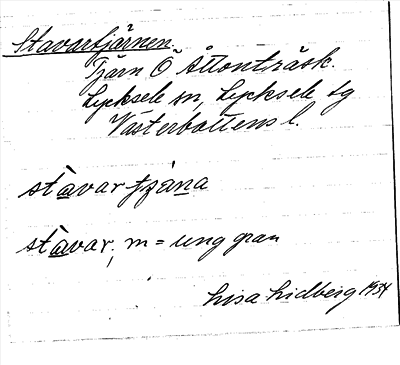 Stavartjärnen.
Tjärn Ö Åttonträsk.
Lycksele sn, Lycksele lg
Västerbottens l.
stavar tjäna
stavar, m = ung gran
Lisa Lidberg 1934